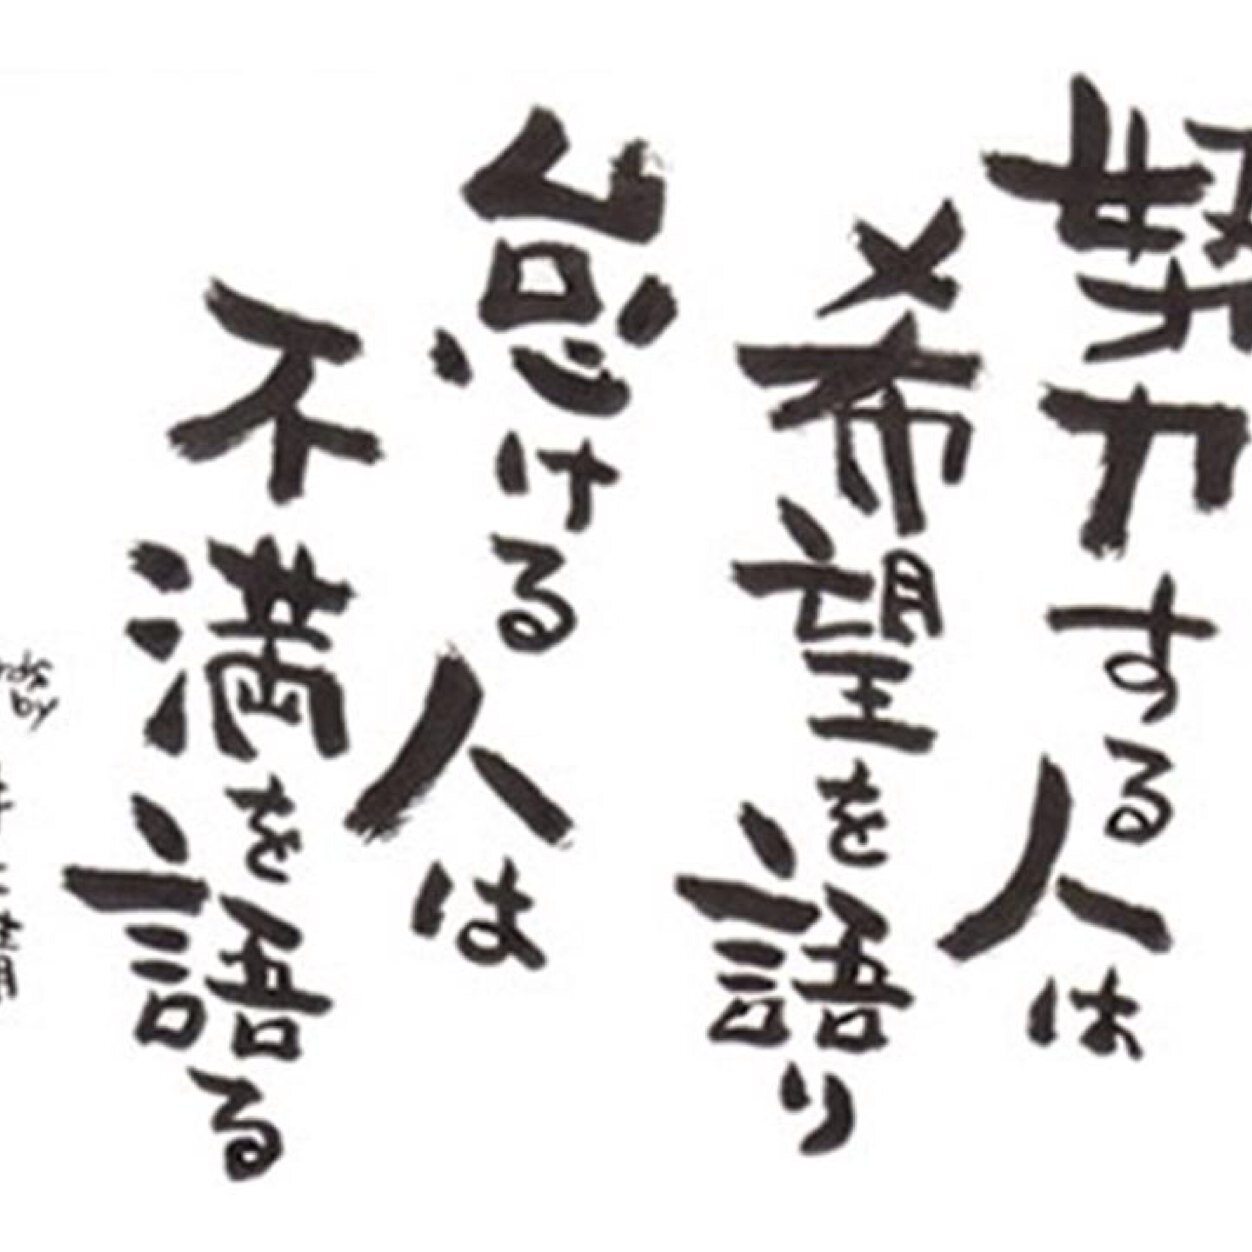 努力する人は
希望を語り
怠ける人は
不満を語る
by